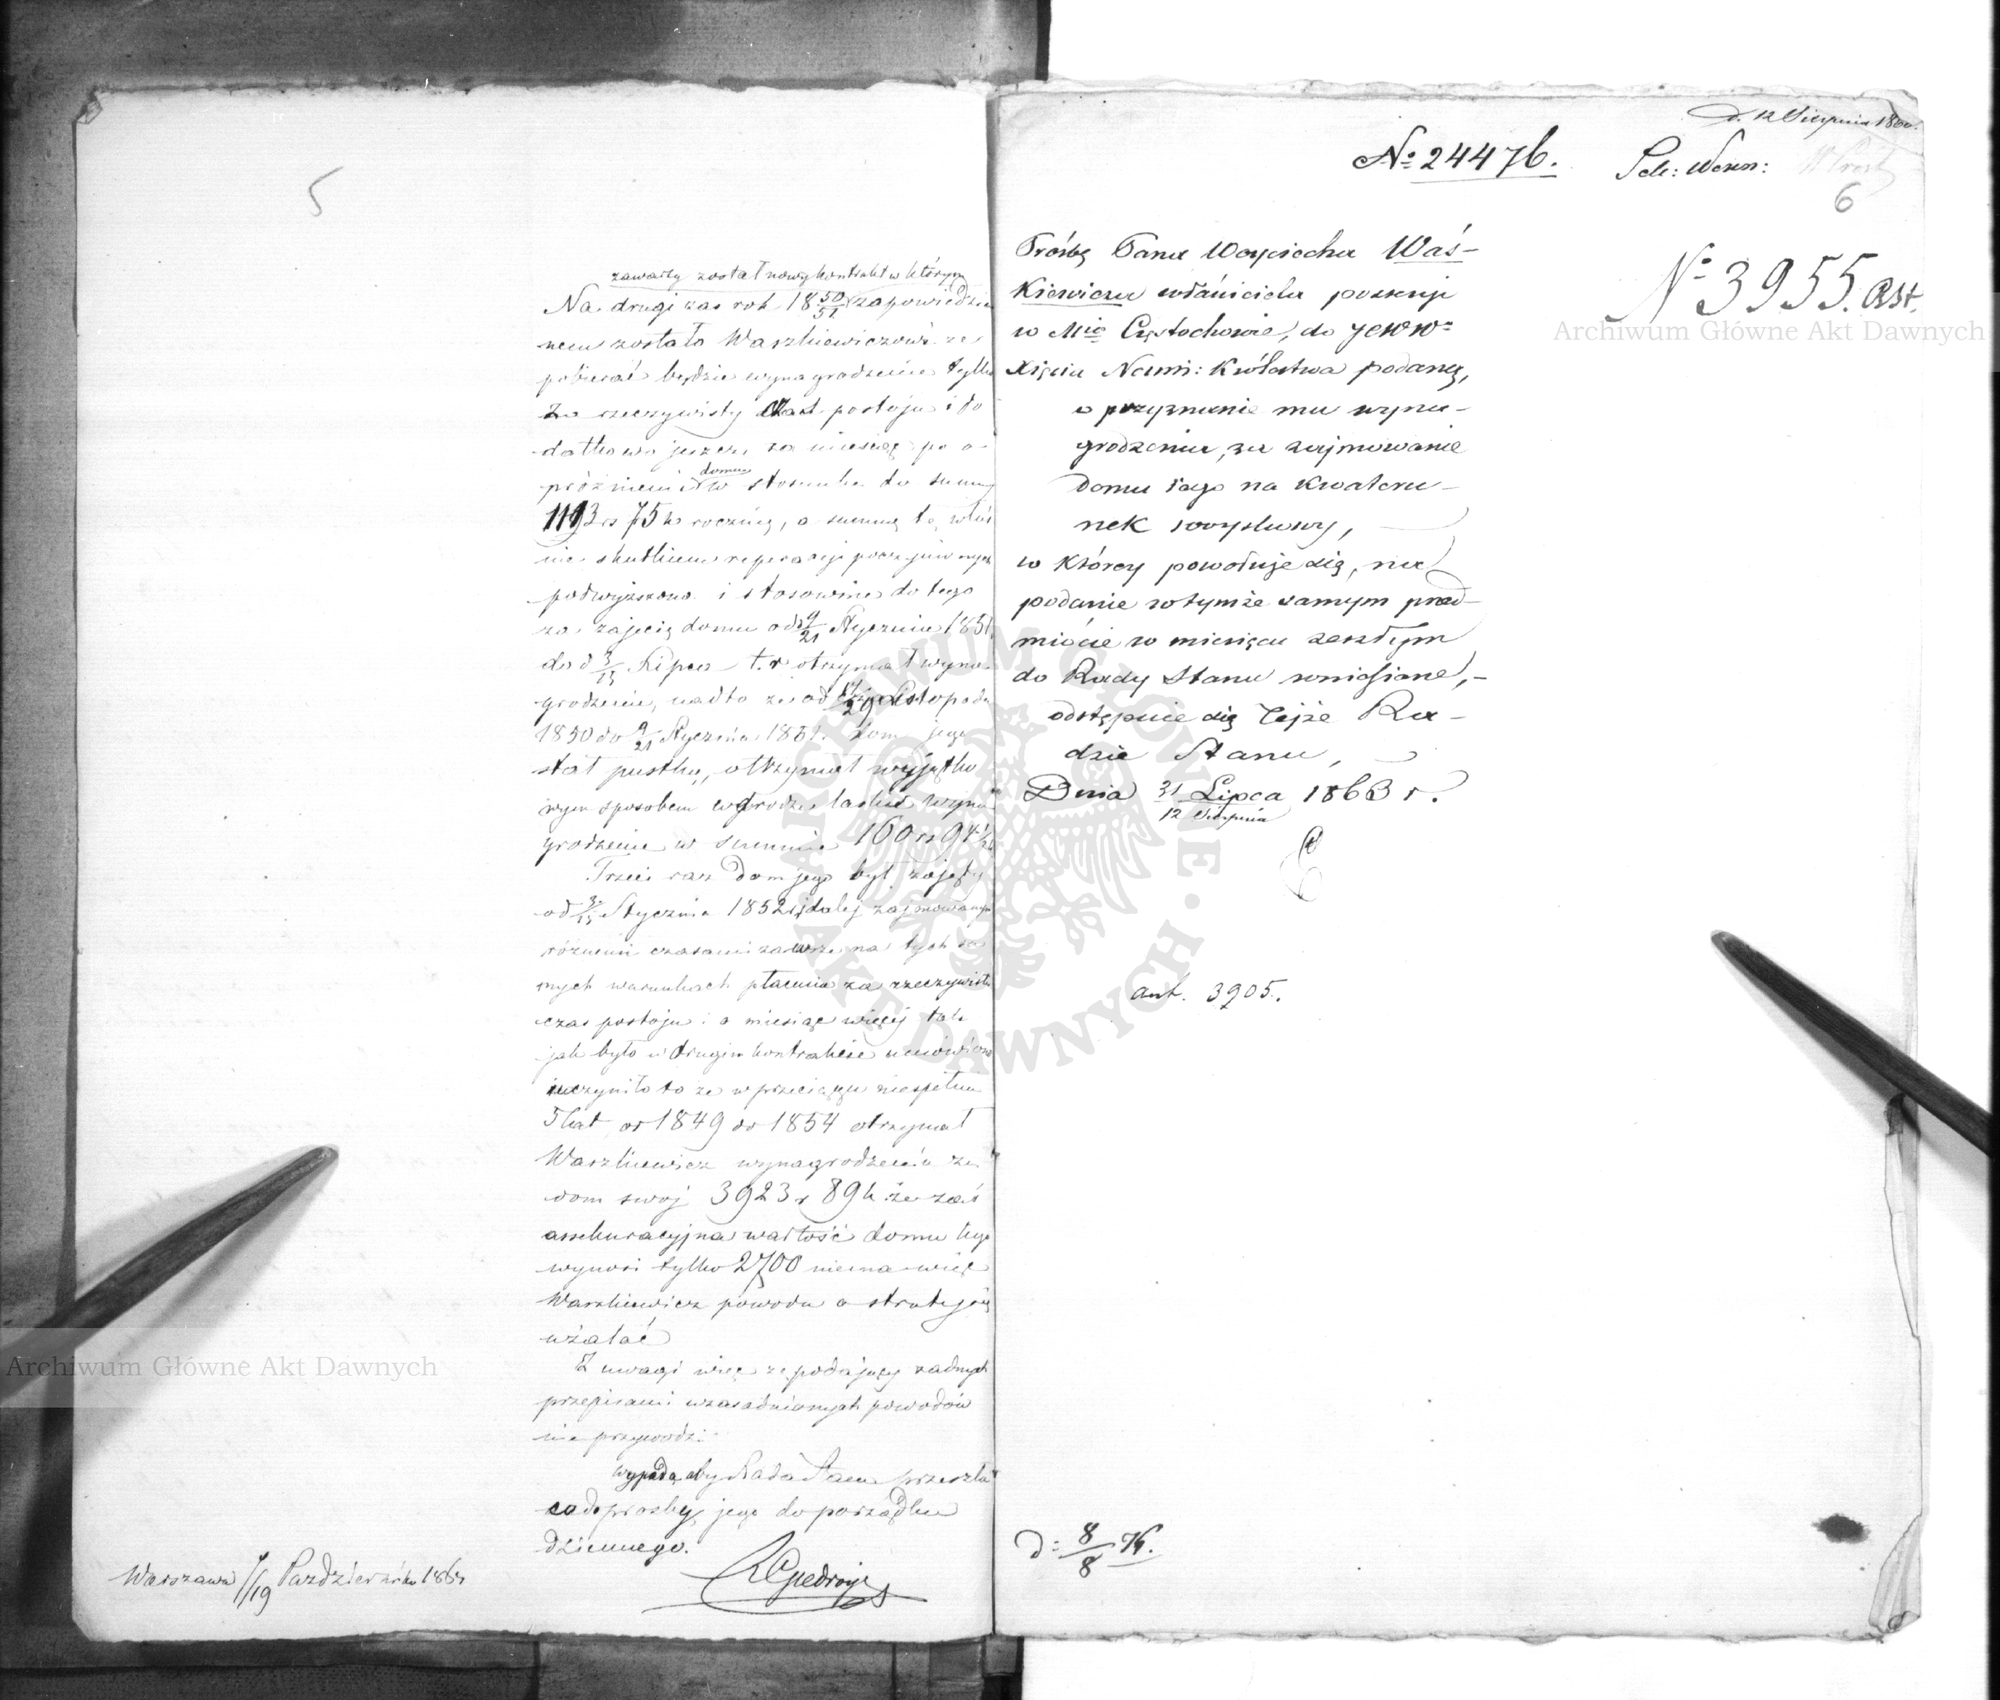 5
zawarty został nowy kontrakt w którym
Na drugi zas rok 18 50/51 zapowiedzia
nem zostało Waszkiewiczowi że
pobierać będzie wynagrodzenie tylko
za rzeczywisty czas postoju i do
datkowo jeszcze za miesiąc po o-
próżnieniu domu w stosunku do summy
1193 rs 75 k rocznie, a summę tę właś
nie skutkiem reperacji poczynionych
podwyższono i stosownie do tego
za zajęcie domu od 9/21 Stycznia 1851
do d 3/15 Lipca t.r otrzymał wyna-
grodzenie, nadto że od 17/29 Listopada
1850 do 9/21 Stycznia 1851 r. dom jego
stał pustką, otrzymał wyjątko
wym sposobem w drodze łaski wyna
grodzenie w summie 160 rs 94 1/2 k
Trzeci raz dom jego był zajęty
od 3/15 Stycznia 1852 i dalej zajmowanym
różnemi czasami zawsze na tych sa
mych warunkach płacenia za rzeczywisty
czas postoju i o miesiąc więcej tak
jak było w drugim kontrakcie umówiono
uczyniło to że w przeciągu niespełna
5 lat od 1849 do 1854 otrzymał
Waszkiewicz wynagrodzenia za
dom swoj 3923 r 89 k że zaś
assekuracyjna wartość domu tego
wynosi tylko 2700 niema więc
Waszkiewicz powodu o stratę się
użalać
Z uwagi więc że podający żadnych
przepisami uzasadnionych powodów
nie przywodzi
wypada aby Rada Stanu przeszła
co do prośby jego do porządku
dziennego.
Warszawa 7/19 Października 1863
d. 12 Sierpnia 186
No 24476.
6
No 3955. ast.
Prośbę Pana Wojciecha Waś-
kiewicza właściciela posesyi
w Mie Częstochowie, do JCWW
Xięcia Nami: Królestwa podaną,
o przyznanie mu wyna-
grodzenia, za zajmowanie
domu iego na kwateru-
nek woyskowy,
w którey powołuje się, na
podanie w tymże samym przed-
miocie w miesiącu zeszłym
do Rady Stanu wniesione,
odstępuie się tejże Ra-
dzie Stanu,
Dnia 31 Lipca / 12 Sierpnia 1863 r.
ant. 3905.
d: 8/8
Archiwum Główne Akt Dawnych
Archiwum Główne Akt Dawnych
ARCHIWUM GŁÓWNE AKT DAWNYCH